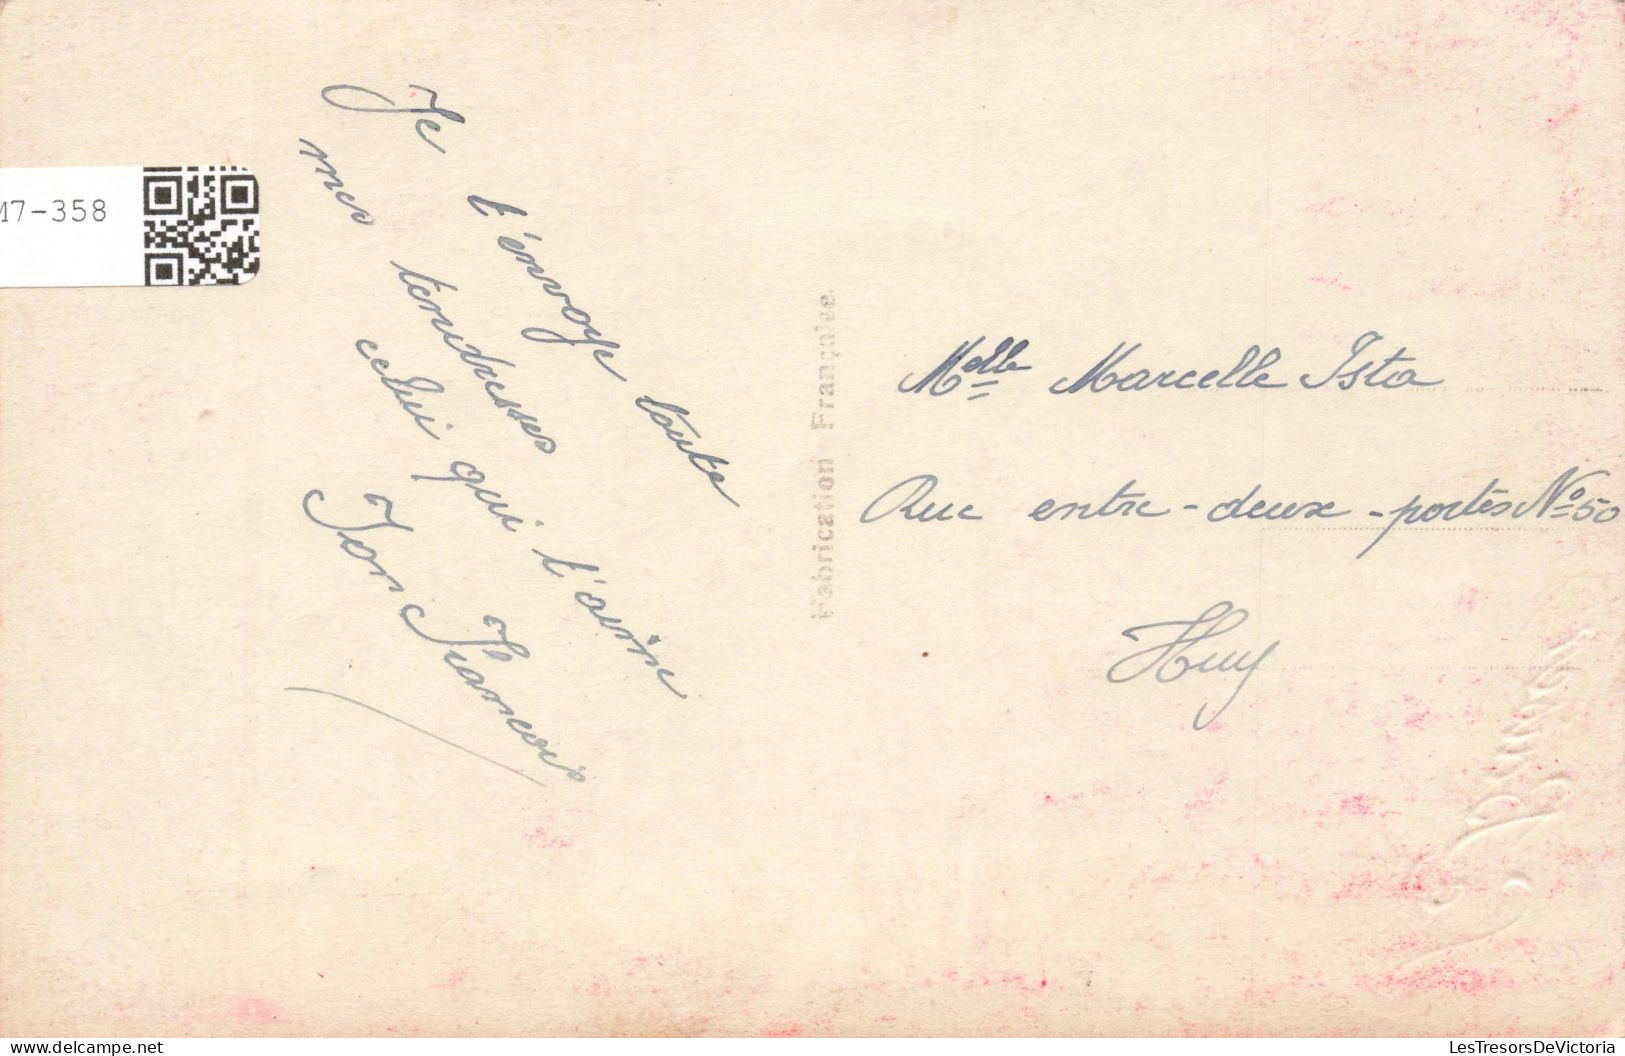 M7-358
Je t'envoye toute
mes tendresses
celui qui t'aime
Ton Francois
Fabrication Française
Melle Marcelle Ista
Rue entre-deux-portes No 50
Huy
LesTresorsDeVictoria